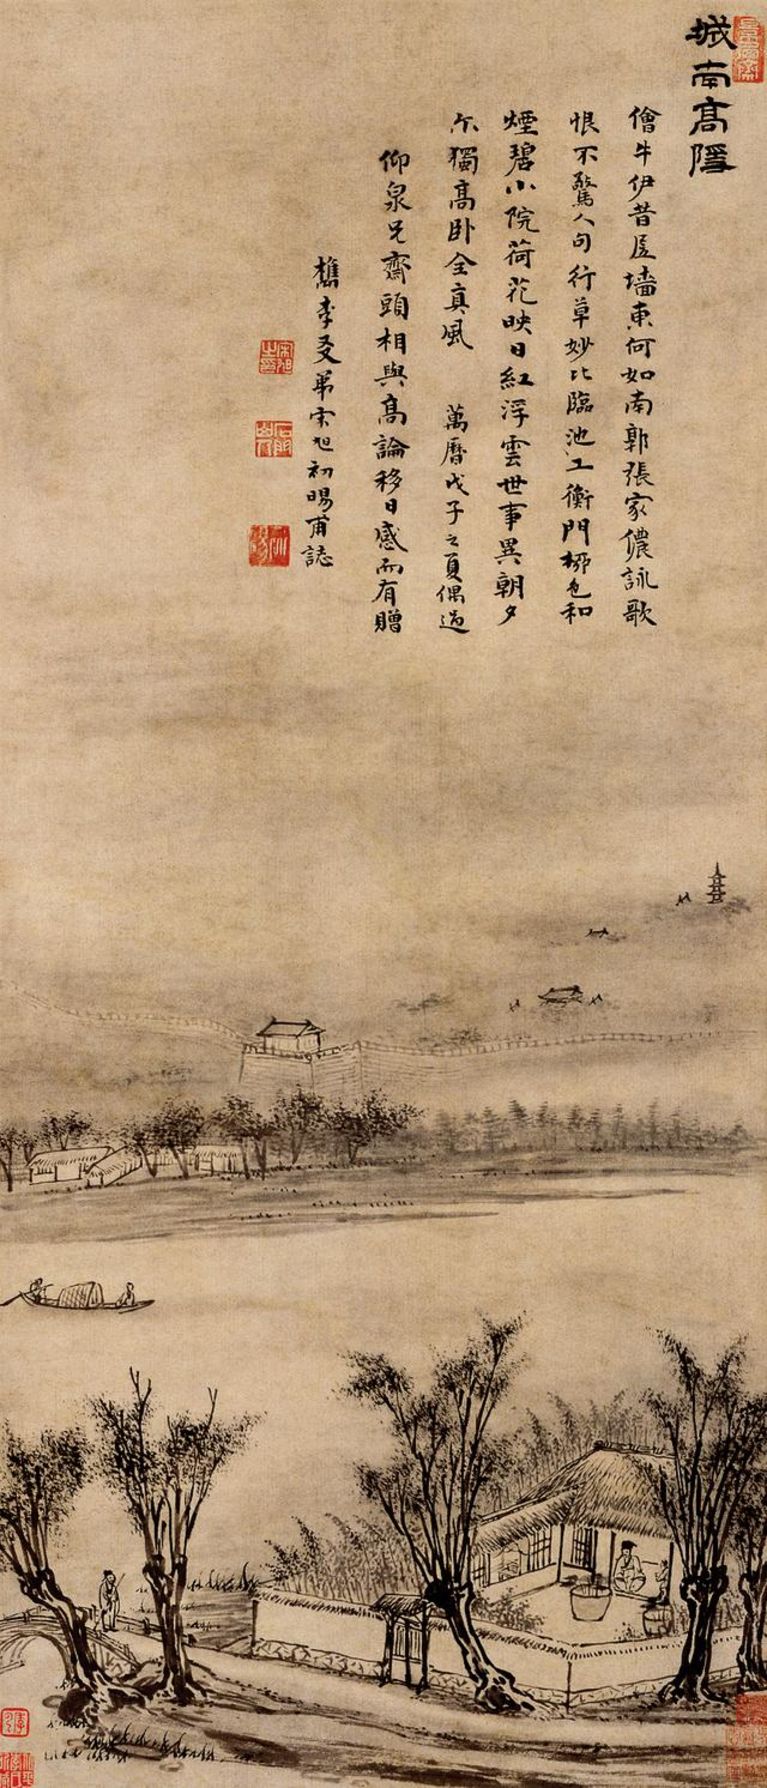 城南高隱
儈牛伊昔居墻東何如南郭張家儂詠歌
恨不驚人句行草妙比臨池工衡門柳色和
煙碧小院荷花映日紅浮雲世事異朝夕
尓獨高臥全真風 萬曆戊子之夏偶過
仰泉兄齋頭相與高論移日感而有贈
檇李友弟宋旭初暘甫誌
宋旭之印
石門山人
初暘